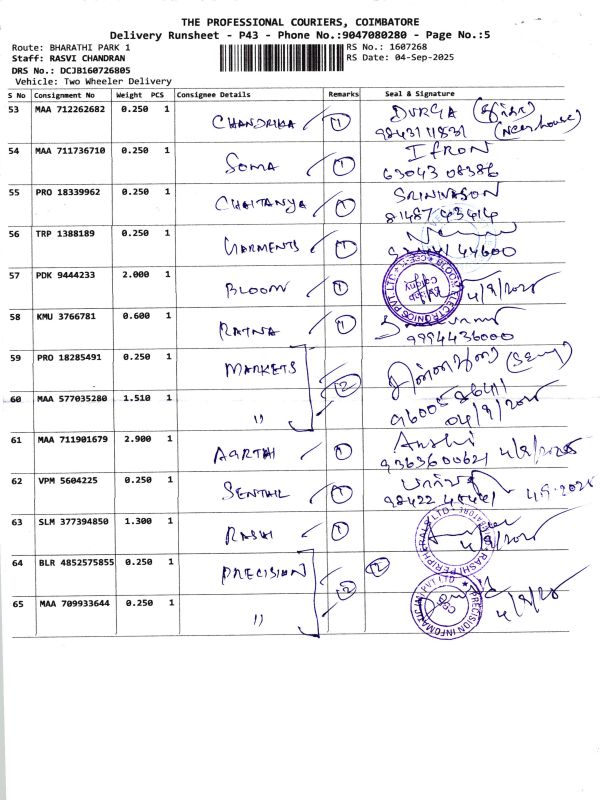 THE PROFESSIONAL COURIERS, COIMBATORE
Delivery Runsheet - P43 - Phone No.:9047080280 - Page No.:5
Route: BHARATHI PARK 1 RS No.: 1607268
Staff: RASVI CHANDRAN RS Date: 04-Sep-2025
DRS No.: DCJB160726805
Vehicle: Two Wheeler Delivery
S No Consignment No Weight PCS Consignee Details Remarks Seal & Signature
53 MAA 712262682 0.250 1 CHANDRIKA 1 DURGA
(Near house)
54 MAA 711736710 0.250 1 SOMA 1 IFRON
63043 08386
55 PRO 18339962 0.250 1 CHAITANYA 1 SRINIVASON
81487 43414
56 TRP 1388189 0.250 1 GARMENTS 1
44600
57 PDK 9444233 2.000 1 BLOOM 1 4/9/2025
58 KMU 3766781 0.600 1 RATNA 1
9994436000
59 PRO 18285491 0.250 1 MARKETS 2
60 MAA 577035280 1.510 1 "
04/9/2025
61 MAA 711901679 2.900 1 AARTHI 1
9363600621 4/9/2025
62 VPM 5604225 0.250 1 SENTHIL 1
98422 4.9.2025
63 SLM 377394850 1.300 1 RASHI 1 RASHI PERIPHERALS LTD
4/9/2025
64 BLR 4852575855 0.250 1 PRECISION 2 2
65 MAA 709933644 0.250 1 " PRECISION INFOMATIC (M) PVT LTD 4/9/2025